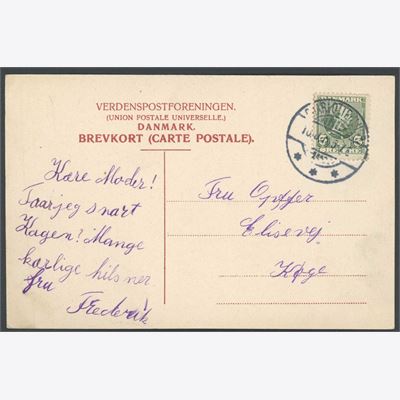 VERDENSPOSTFORENINGEN.
(UNION POSTALE UNIVERSELLE.)
DANMARK.
BREVKORT (CARTE POSTALE).
Kære Moder!
Faar jeg snart
Kagen? Mange
kærlige hilsner
fru
Frederik
Fru
Elisevej
Køge
DANMARK